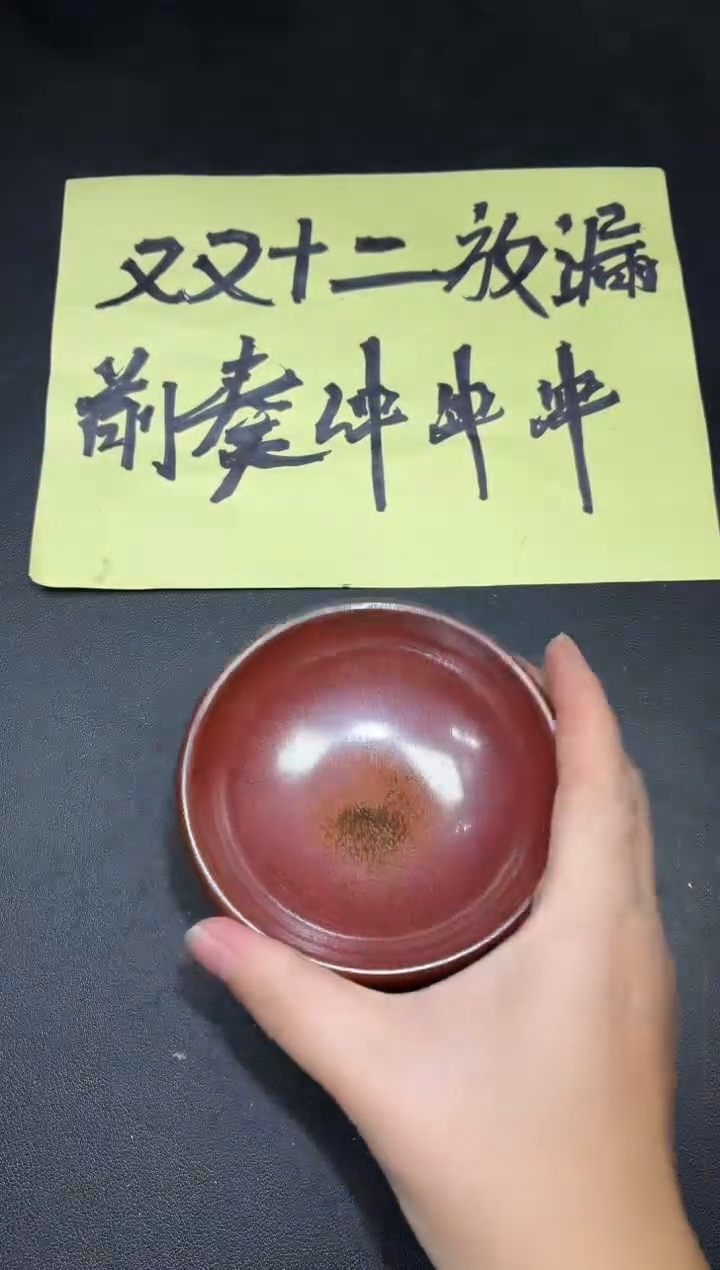 双十二放漏
前奏冲冲冲